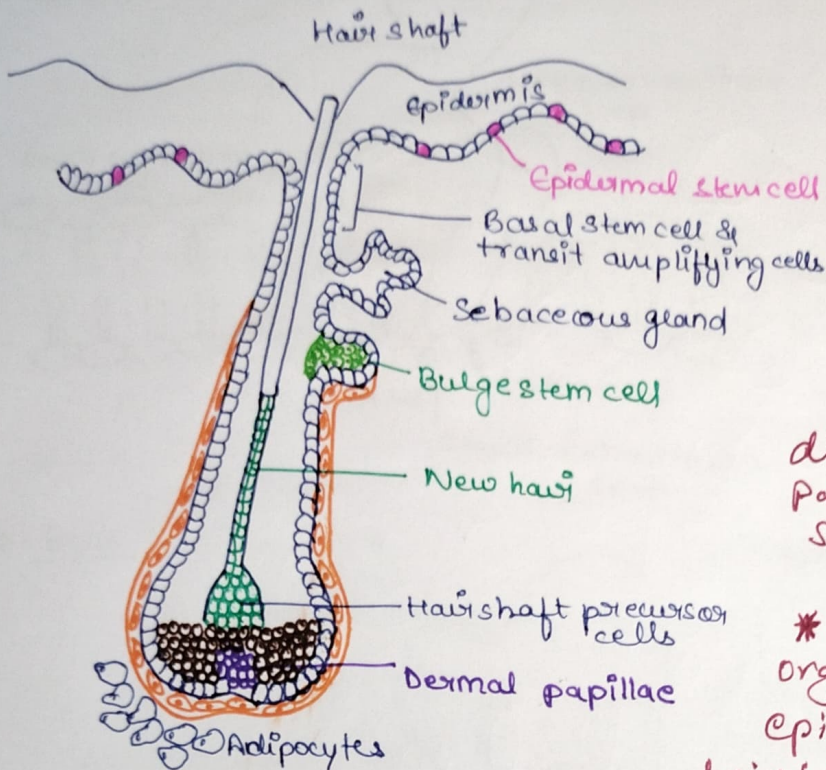 Hair shaft
Epidermis
Epidermal stem cell
Basal stem cell &
transit amplifying cells
Sebaceous gland
Bulge stem cell
New hair
Hair shaft precursor
cells
Dermal papillae
Adipocytes
*